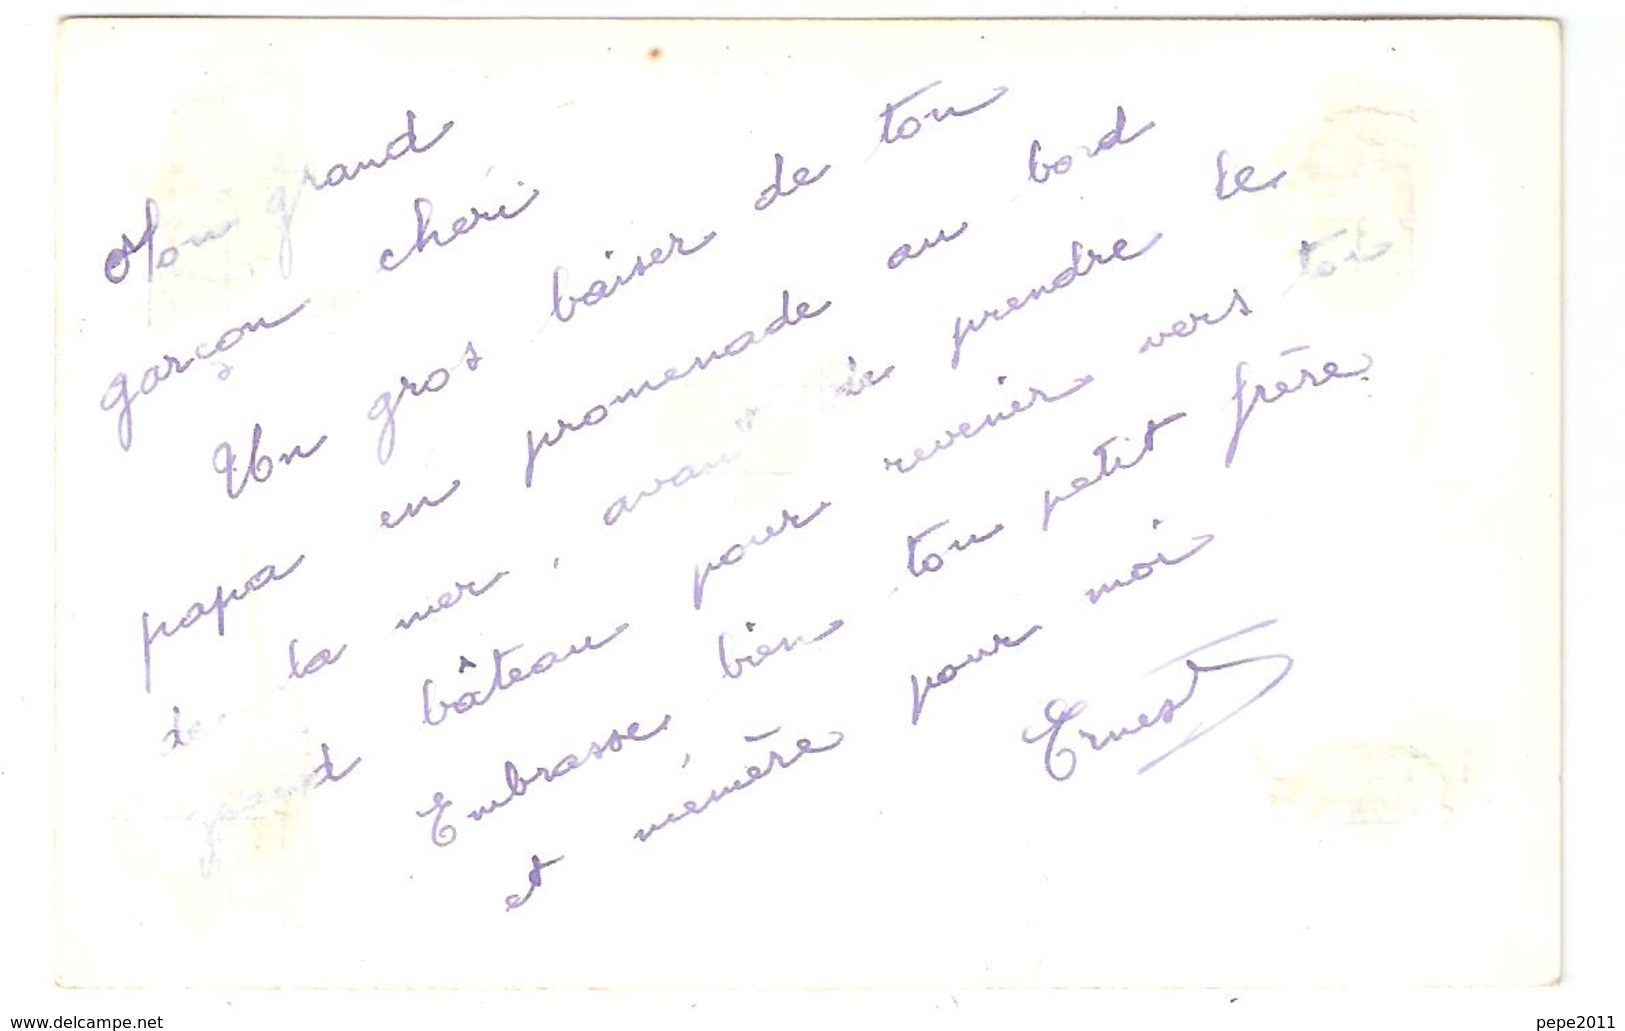 Mon grand
garçon chéri
Un gros baiser de ton
papa en promenade au bord
de la mer, avant de prendre le
grand bâteau pour revenir vers toi
Embrasse, bien ton petit frère
et mémère pour moi
Ernest
www.delcampe.net
pepe2011